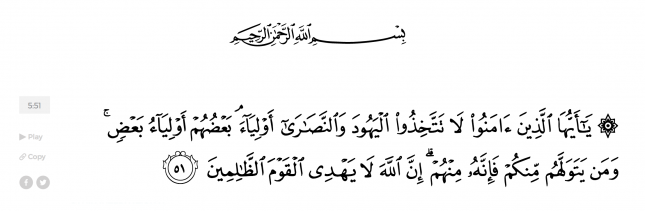 بِسْمِ ٱللَّهِ ٱلرَّحْمَٰنِ ٱلرَّحِيمِ
5:51
۞ يَـٰٓأَيُّهَا ٱلَّذِينَ ءَامَنُوا۟ لَا تَتَّخِذُوا۟ ٱلْيَهُودَ وَٱلنَّصَـٰرَىٰٓ أَوْلِيَآءَ ۘ بَعْضُهُمْ أَوْلِيَآءُ بَعْضٍۢ ۚ
Play
Copy
وَمَن يَتَوَلَّهُم مِّنكُمْ فَإِنَّهُۥ مِنْهُمْ ۗ إِنَّ ٱللَّهَ لَا يَهْدِى ٱلْقَوْمَ ٱلظَّـٰلِمِينَ ٥١